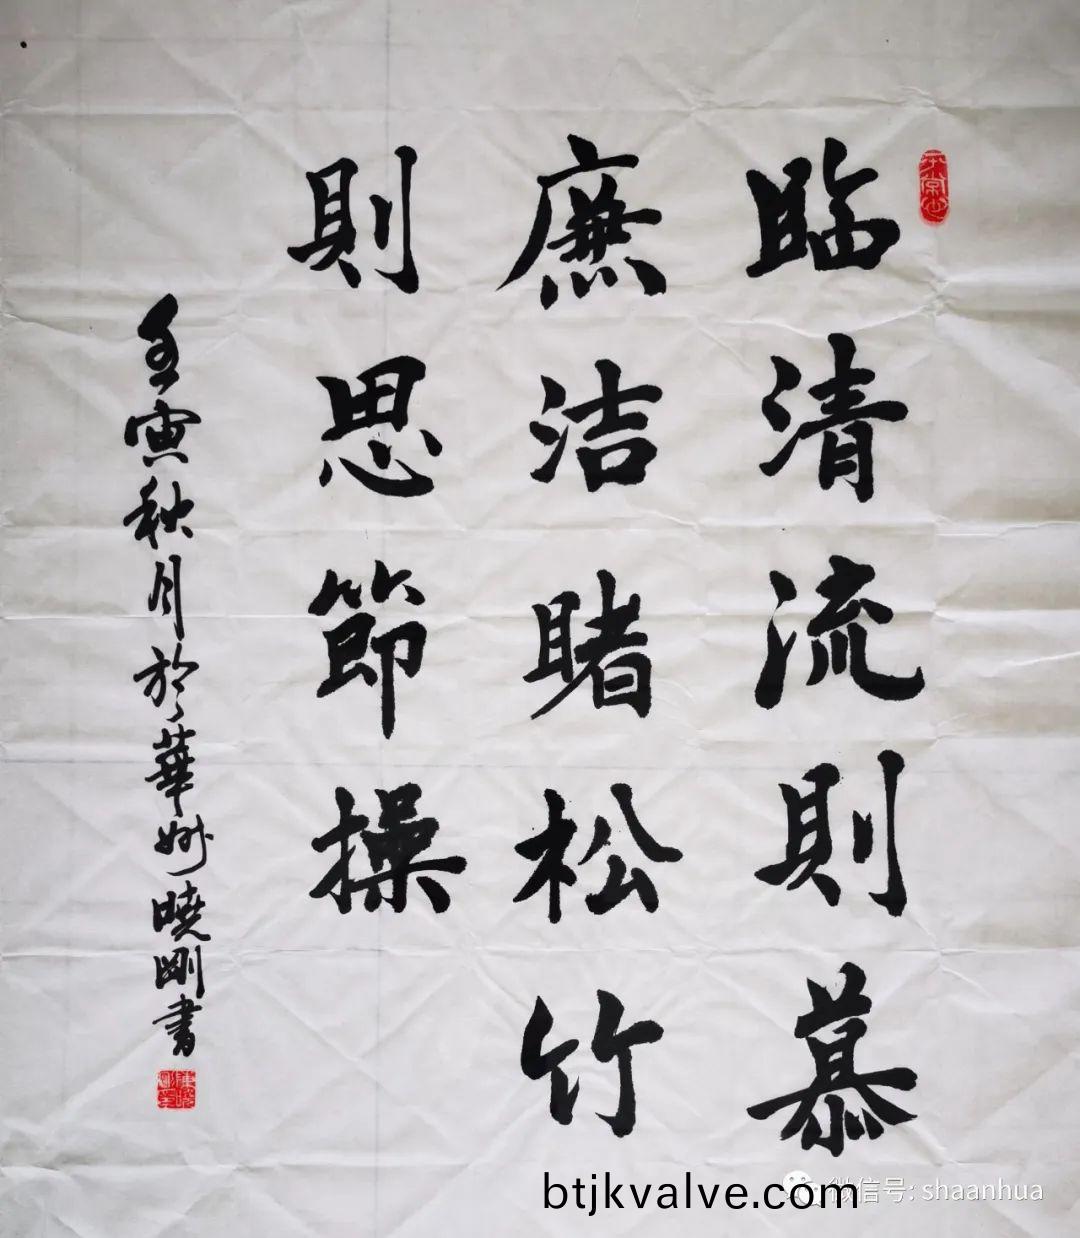 臨清流則慕
廉洁睹松竹
則思節操
壬寅秋月於華州曉剛書
btjkvalve.com
微信号: shaanhua